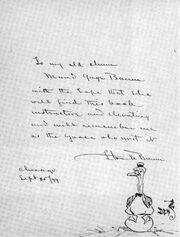 To my old chum
Maud Gage Baum
with the hope that she
will find this book
instructive and elevating
and will remember me
as the goose who writ it
Chicago
Sept 25/99